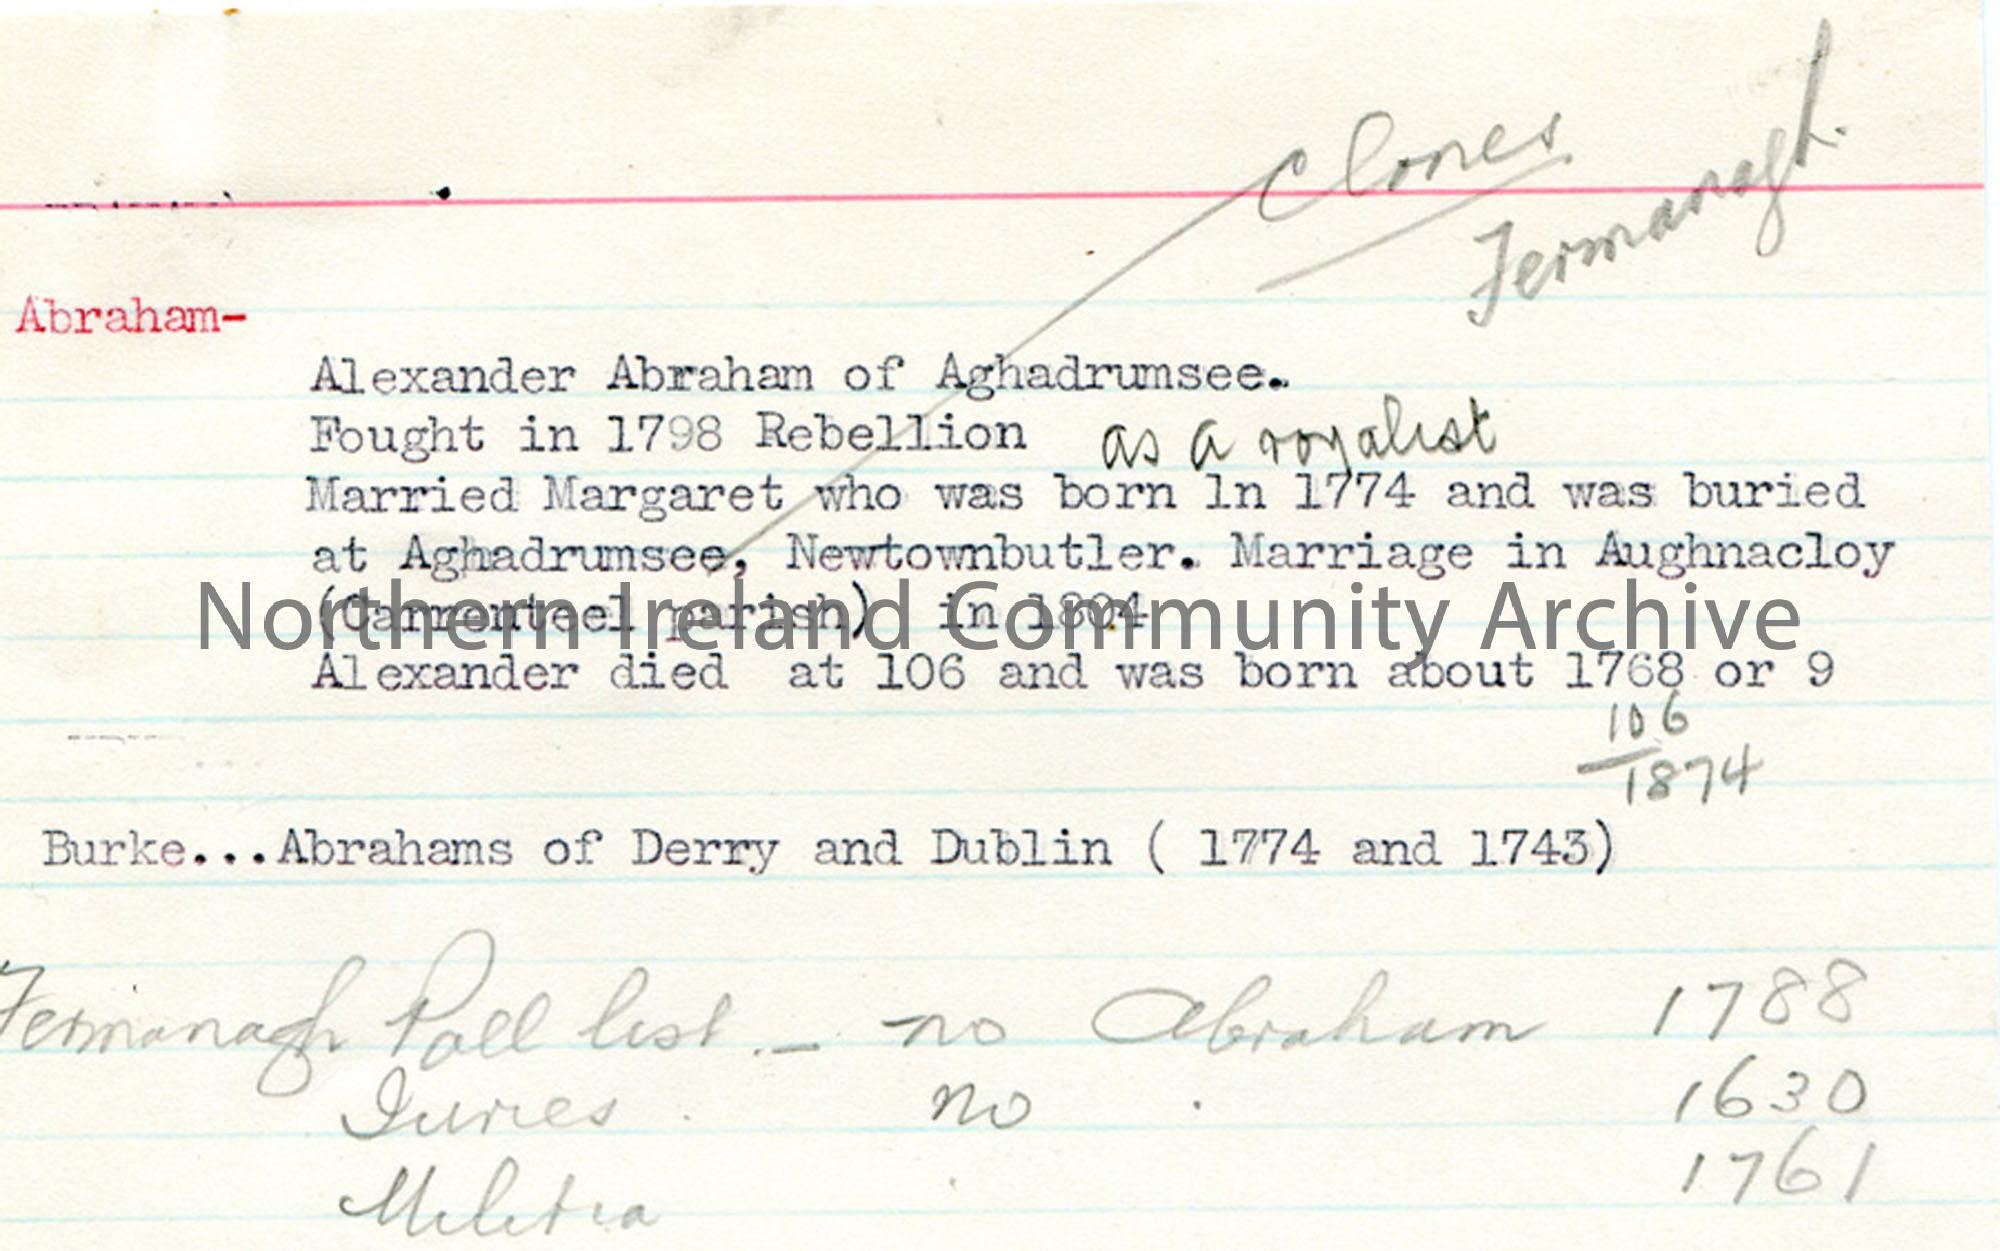 Clones
Fermanagh.
Abraham-
Alexander Abraham of Aghadrumsee.
Fought in 1798 Rebellion as a royalist
Married Margaret who was born ln 1774 and was buried
at Aghadrumsee, Newtownbutler. Marriage in Aughnacloy
(Carrenteel parish) in 1804
Northern Ireland Community Archive
Alexander died at 106 and was born about 1768 or 9
106
1874
Burke...Abrahams of Derry and Dublin ( 1774 and 1743)
Fermanagh Poll list - no Abraham 1788
Juries no 1630
Militia 1761